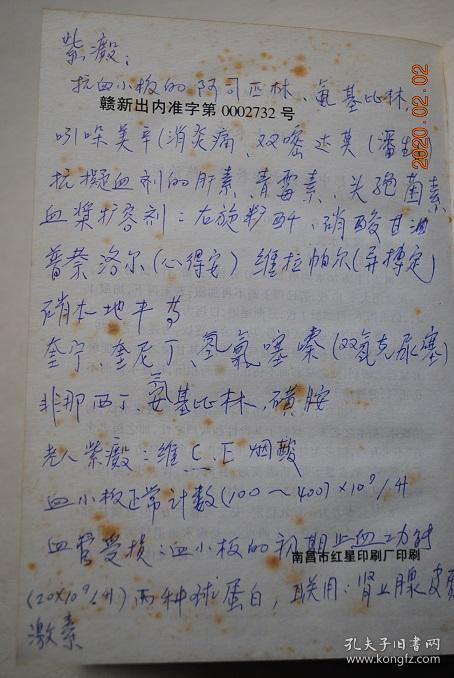 紫癜:
抗血小板的阿司匹林、氨基比林,
赣新出内准字第 0002732 号
吲哚美辛(消炎痛、双嘧达莫(潘生
抗凝血剂的肝素、青霉素、头孢菌素、
血浆扩容剂:右旋糖酐、硝酸甘油
普萘洛尔(心得安) 维拉帕尔(异搏定)
硝本地平等
奎宁、奎尼丁、氢氯噻嗪(双氢克尿塞)
非那西丁、氨基比林,磺胺
老人紫癜:维C、E 烟酸
血小板正常计数(100～400)×10⁹/升
血管受损:血小板的初期止血功能
南昌市红星印刷厂印刷
(20×10⁹/升)两种球蛋白,联用:肾上腺皮质
激素
2020.02.02
孔夫子旧书网